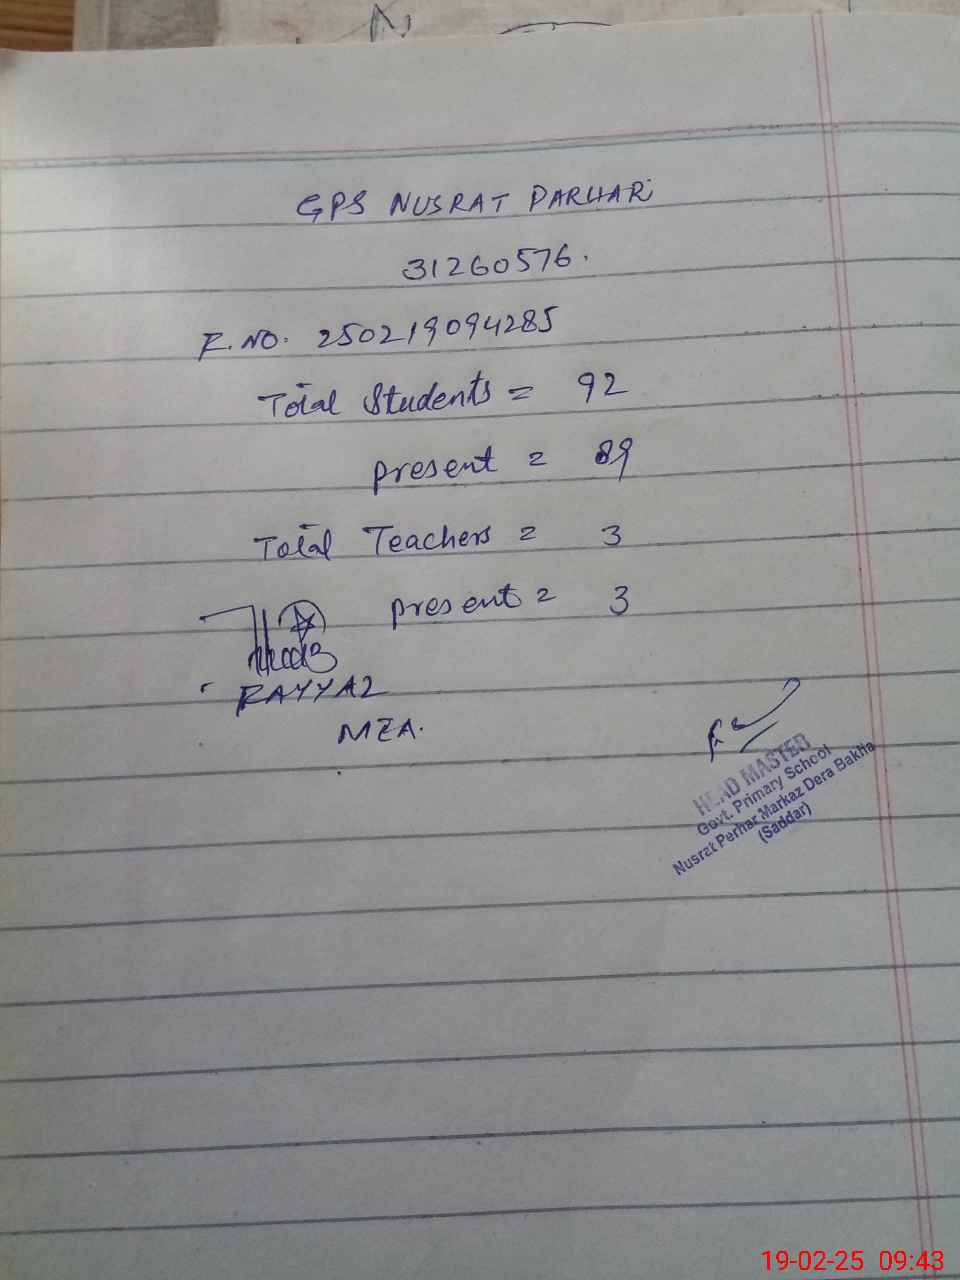 GPS NUSRAT PARHAR
31260576.
F.NO. 250219094285
Total Students = 92
present = 89
Total Teachers = 3
present = 3
RAYYAZ
MEA.
HEAD MASTER
Govt. Primary School
Nusrat Perhar Markaz Dera Bakha
(Saddar)
19-02-25 09:43